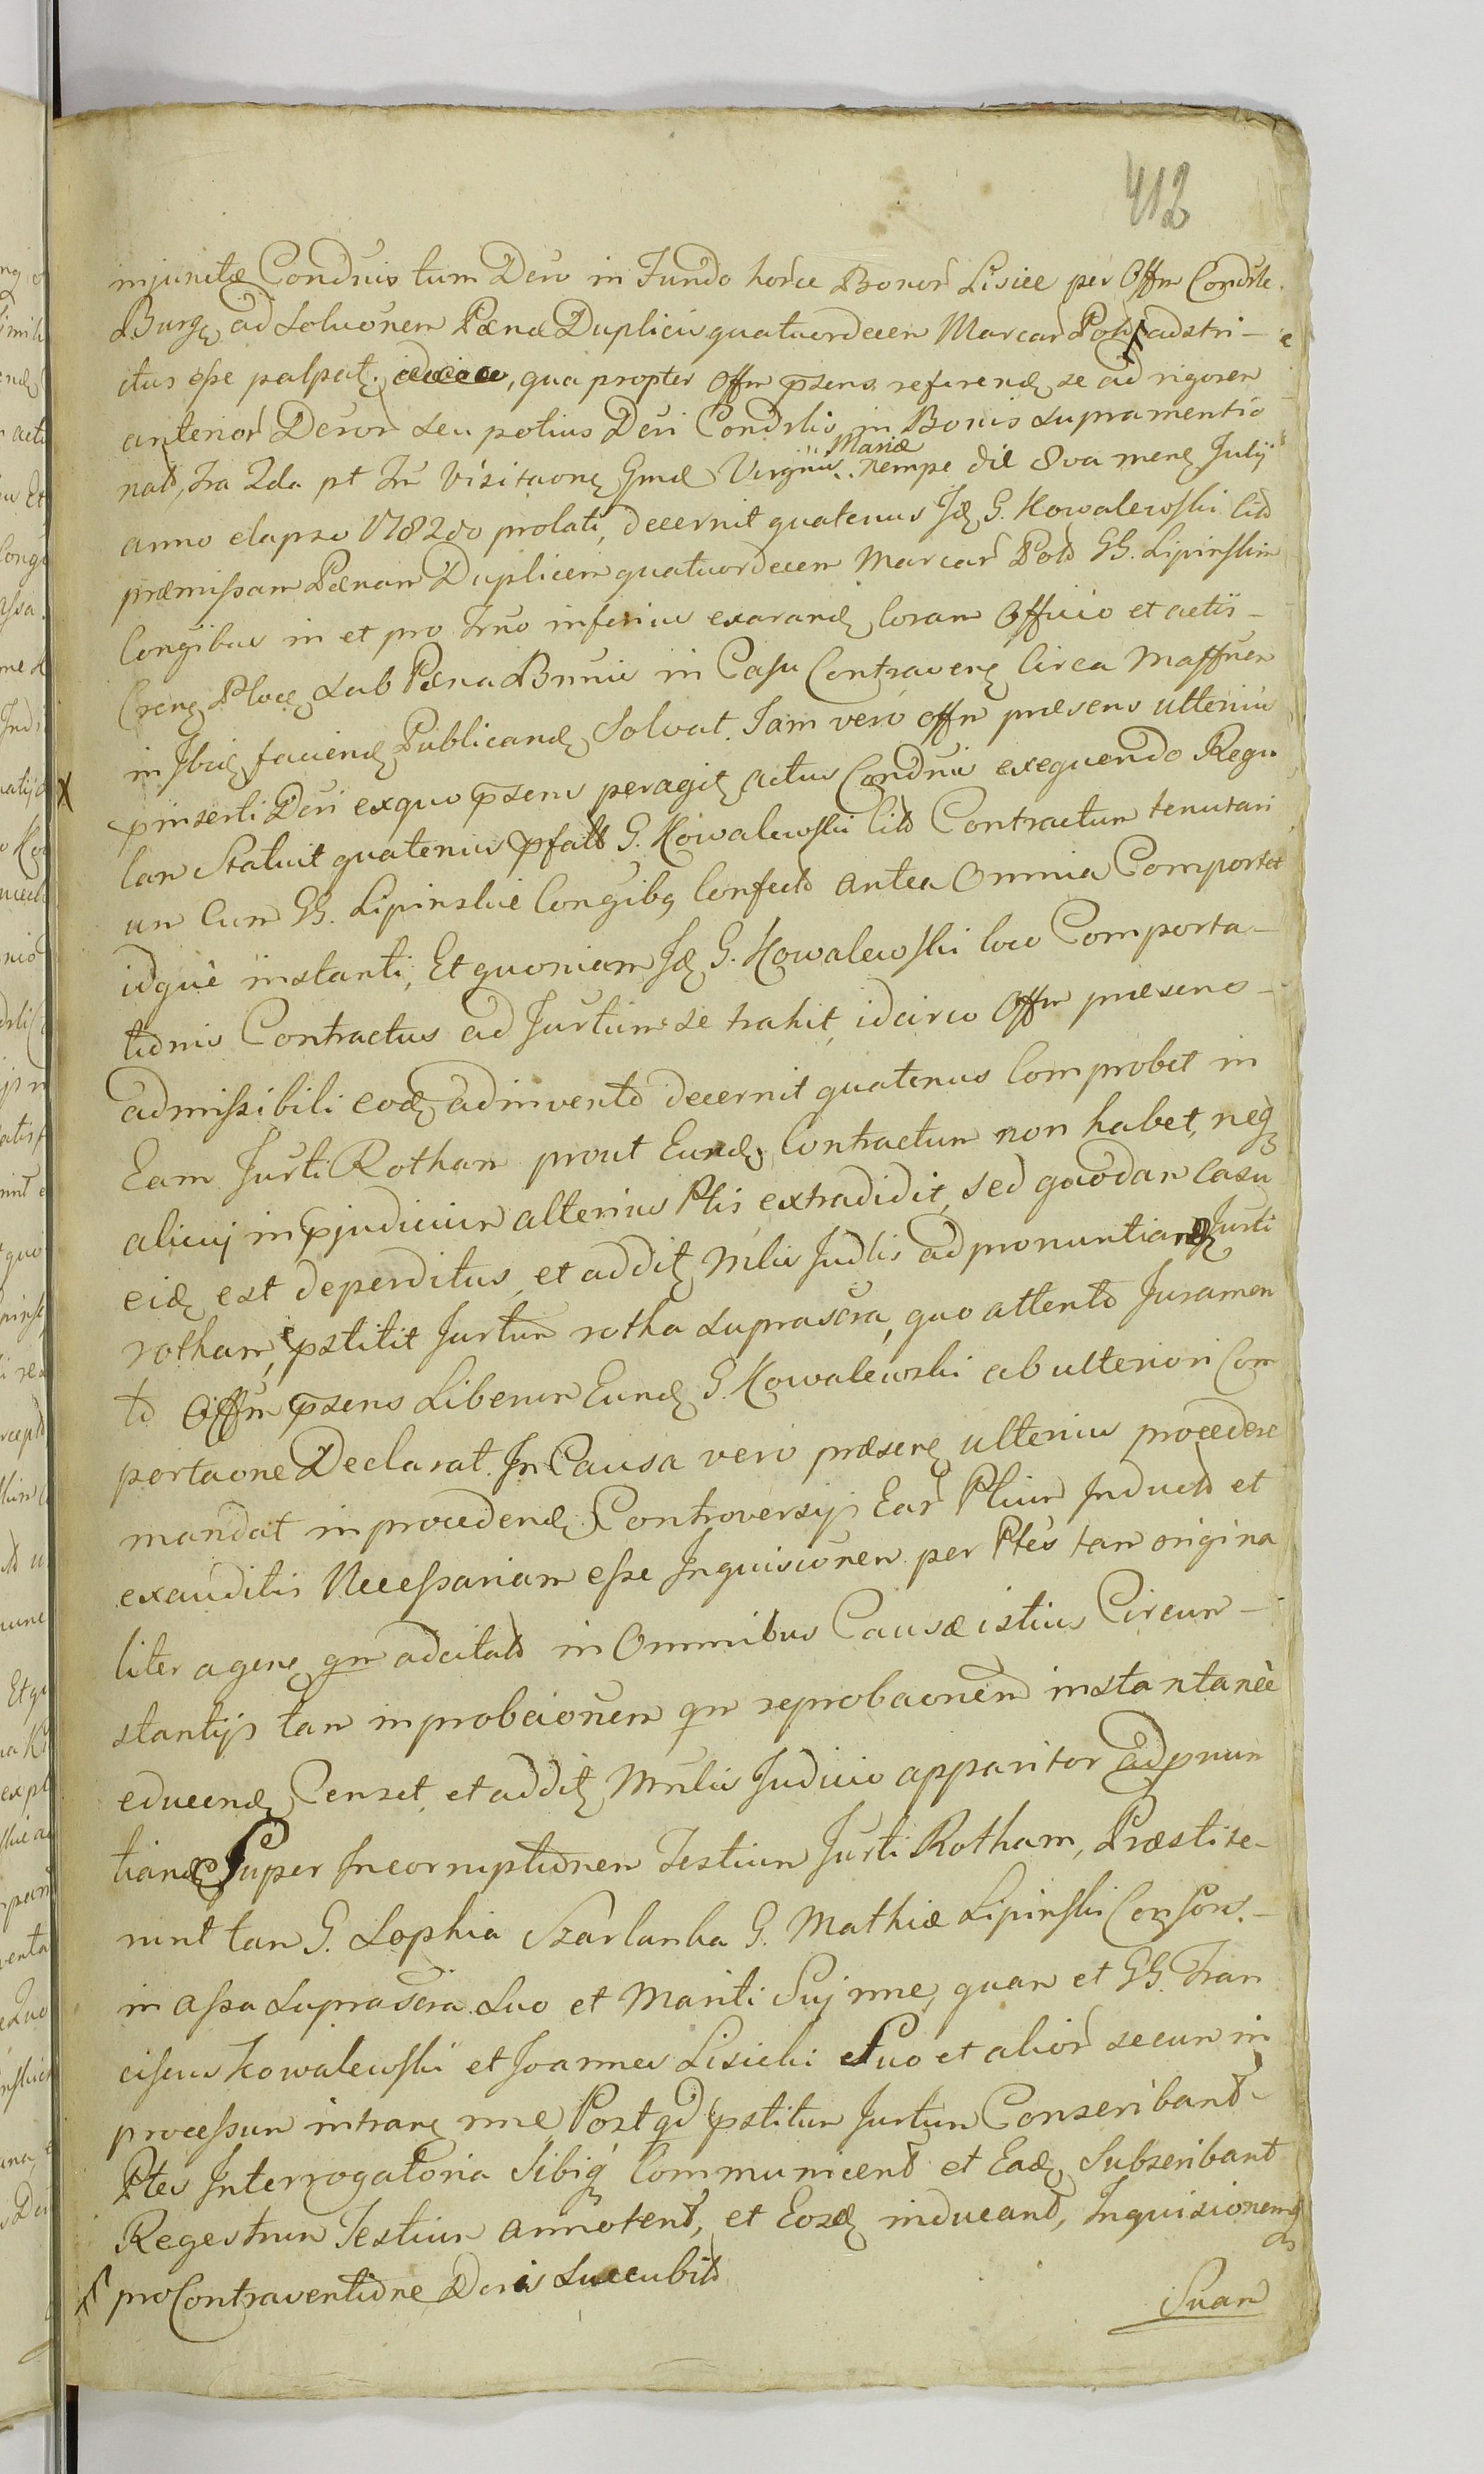 412
injunctæ Condnis tum Dnu in Fundo horce Bonor Lisice per Offm Condrle
Burg ad Soluonem Pænæ Duplicis quatuordecem Marcar Pol adstri-
ctus esse palpat. , qua propter Offm præsens referend se ad rigorem
anterior Decror seu potius Dcri Condrlis in Bonis supramentio
nat, fra 2da pt Fm Visitaone Gmæ Virginis Mariæ nempe die 8va mene Julij
anno elapso 1782do prolati, decernit quatenus Id G. Kowalewski Citt
præmissam Pænam Duplicem quatuordecem Marcar Pol GG. Lipinskim
Congibus in et pro Trno inferius exarand Coram Officio et actis
Crens Ploce sub Pæna Bnnis in Casu Contraven Circa Maffnem
in Ibid faciend Publicand Solvat. Jam vero Offm præsens ulterius
X pinserti Dcri exquo psens peragit actus Condnis exequendo Regu
lam Statuit quatenus pfatt G. Kowalewski Citt Contractum tenutari
um Cum GG. Lipinskie Congibq Confect antea Omnia Comportet
idque instanti, Et quoniam Id G. Kowalewski loco Comporta-
tionis Contractus ad Jurtum se trahit, idcirco Offm præsens
admissibili eod adinvento decernit quatenus Comprobet in
Eam Jurti Rotham prout Eund Contractum non habet, neq
alicuj in pjudicium alterius Ptis extradidit, sed quodam casu
eid est deperditus, et addit Mlis Judlis ad pronuntiand Jurti
rotham, pstitit Jurtum rotha suprascra, quo attento Juramen
to Offm psens Liberum Eund G. Kowalewski ab ulteriori Com
portaone Declarat. In Causa vero præsene ulterius procedere
mandat in procedend Controversijs Ear Ptium Induct et
exauditis Necessariam esse Inquisionem per Ptes tam origina
liter agene qm adcitatt in Omnibus Causæ istius Circum-
stantijs tam in probaonem qm reprobaonem instantanèe
educend Censet, et addit Mnlis Judicio apparitor ad pnun
tiand Super Incorruptionem Testium Jurti Rotham, Præstite-
runt tam G. Sophia Szarlanka G. Mathiæ Lipinski Consors.
in assa suprascra suo et Mariti Suj nne, quam et GG. Fran
ciscus Kowalewski et Joannes Lisicki Suo et alior secum in
processum intrane nne Post qd pstitum Jurtum Conscribant
Ptes Interrogatoria Sibiq Communicent et Ead Subscribant
Regestrum Testium annotent, et Eosd inducant, Inquisionemq
pro Contraventione Dcris Succubitt
Suam